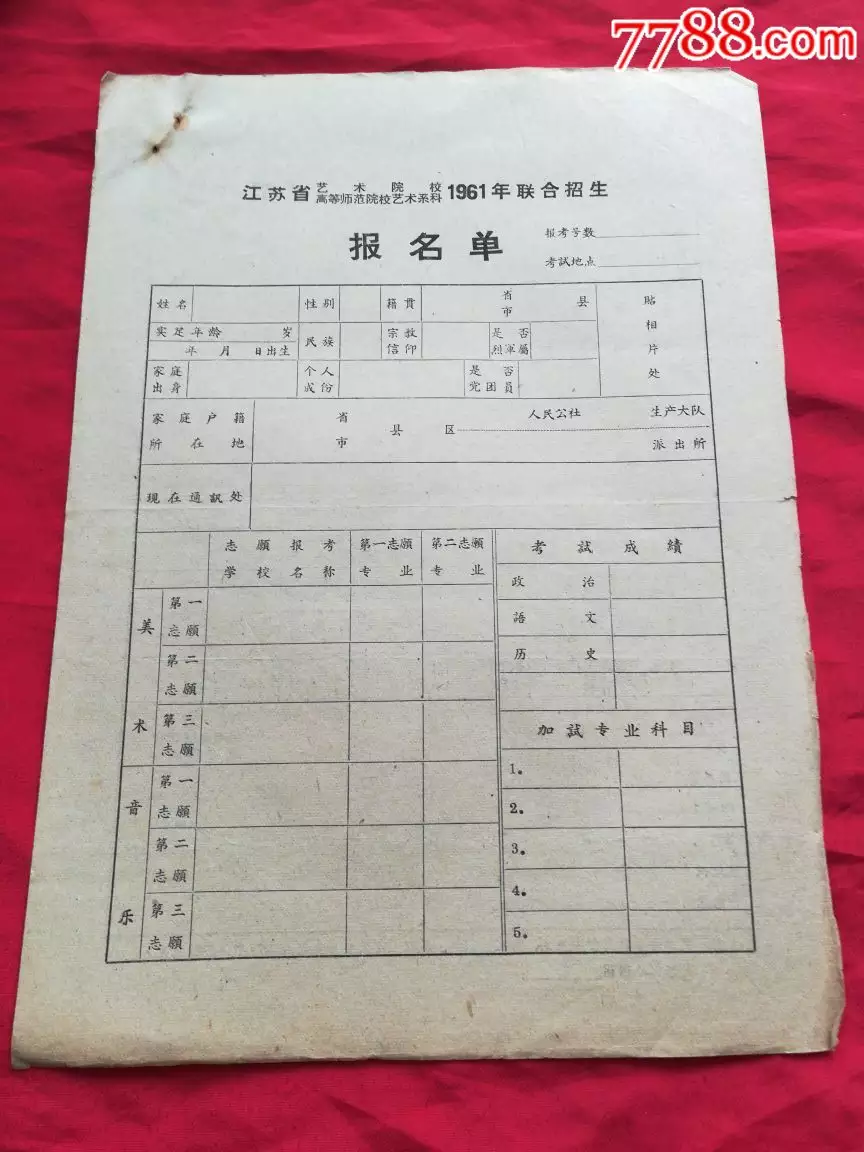 7788.com
江苏省 艺术院校 1961年联合招生
高等师范院校艺术系科
报名单
报考号数
考試地点
姓名 性别 籍貫 省 县
市
贴相片处
实足年龄 岁 民族 宗教 是否
年 月 日出生 信仰 烈軍屬
家庭 个人 是否
出身 成份 党团員
家庭户籍 省 县 区 人民公社 生产大队
所在地 市 派出所
現在通訊处
志願报考 第一志願 第二志願 考試成績
学校名称 专业 专业
政治
語文
历史
美术
第一
志願
第二
志願
第三
志願
加試专业科目
1.
2.
3.
4.
5.
音乐
第一
志願
第二
志願
第三
志願